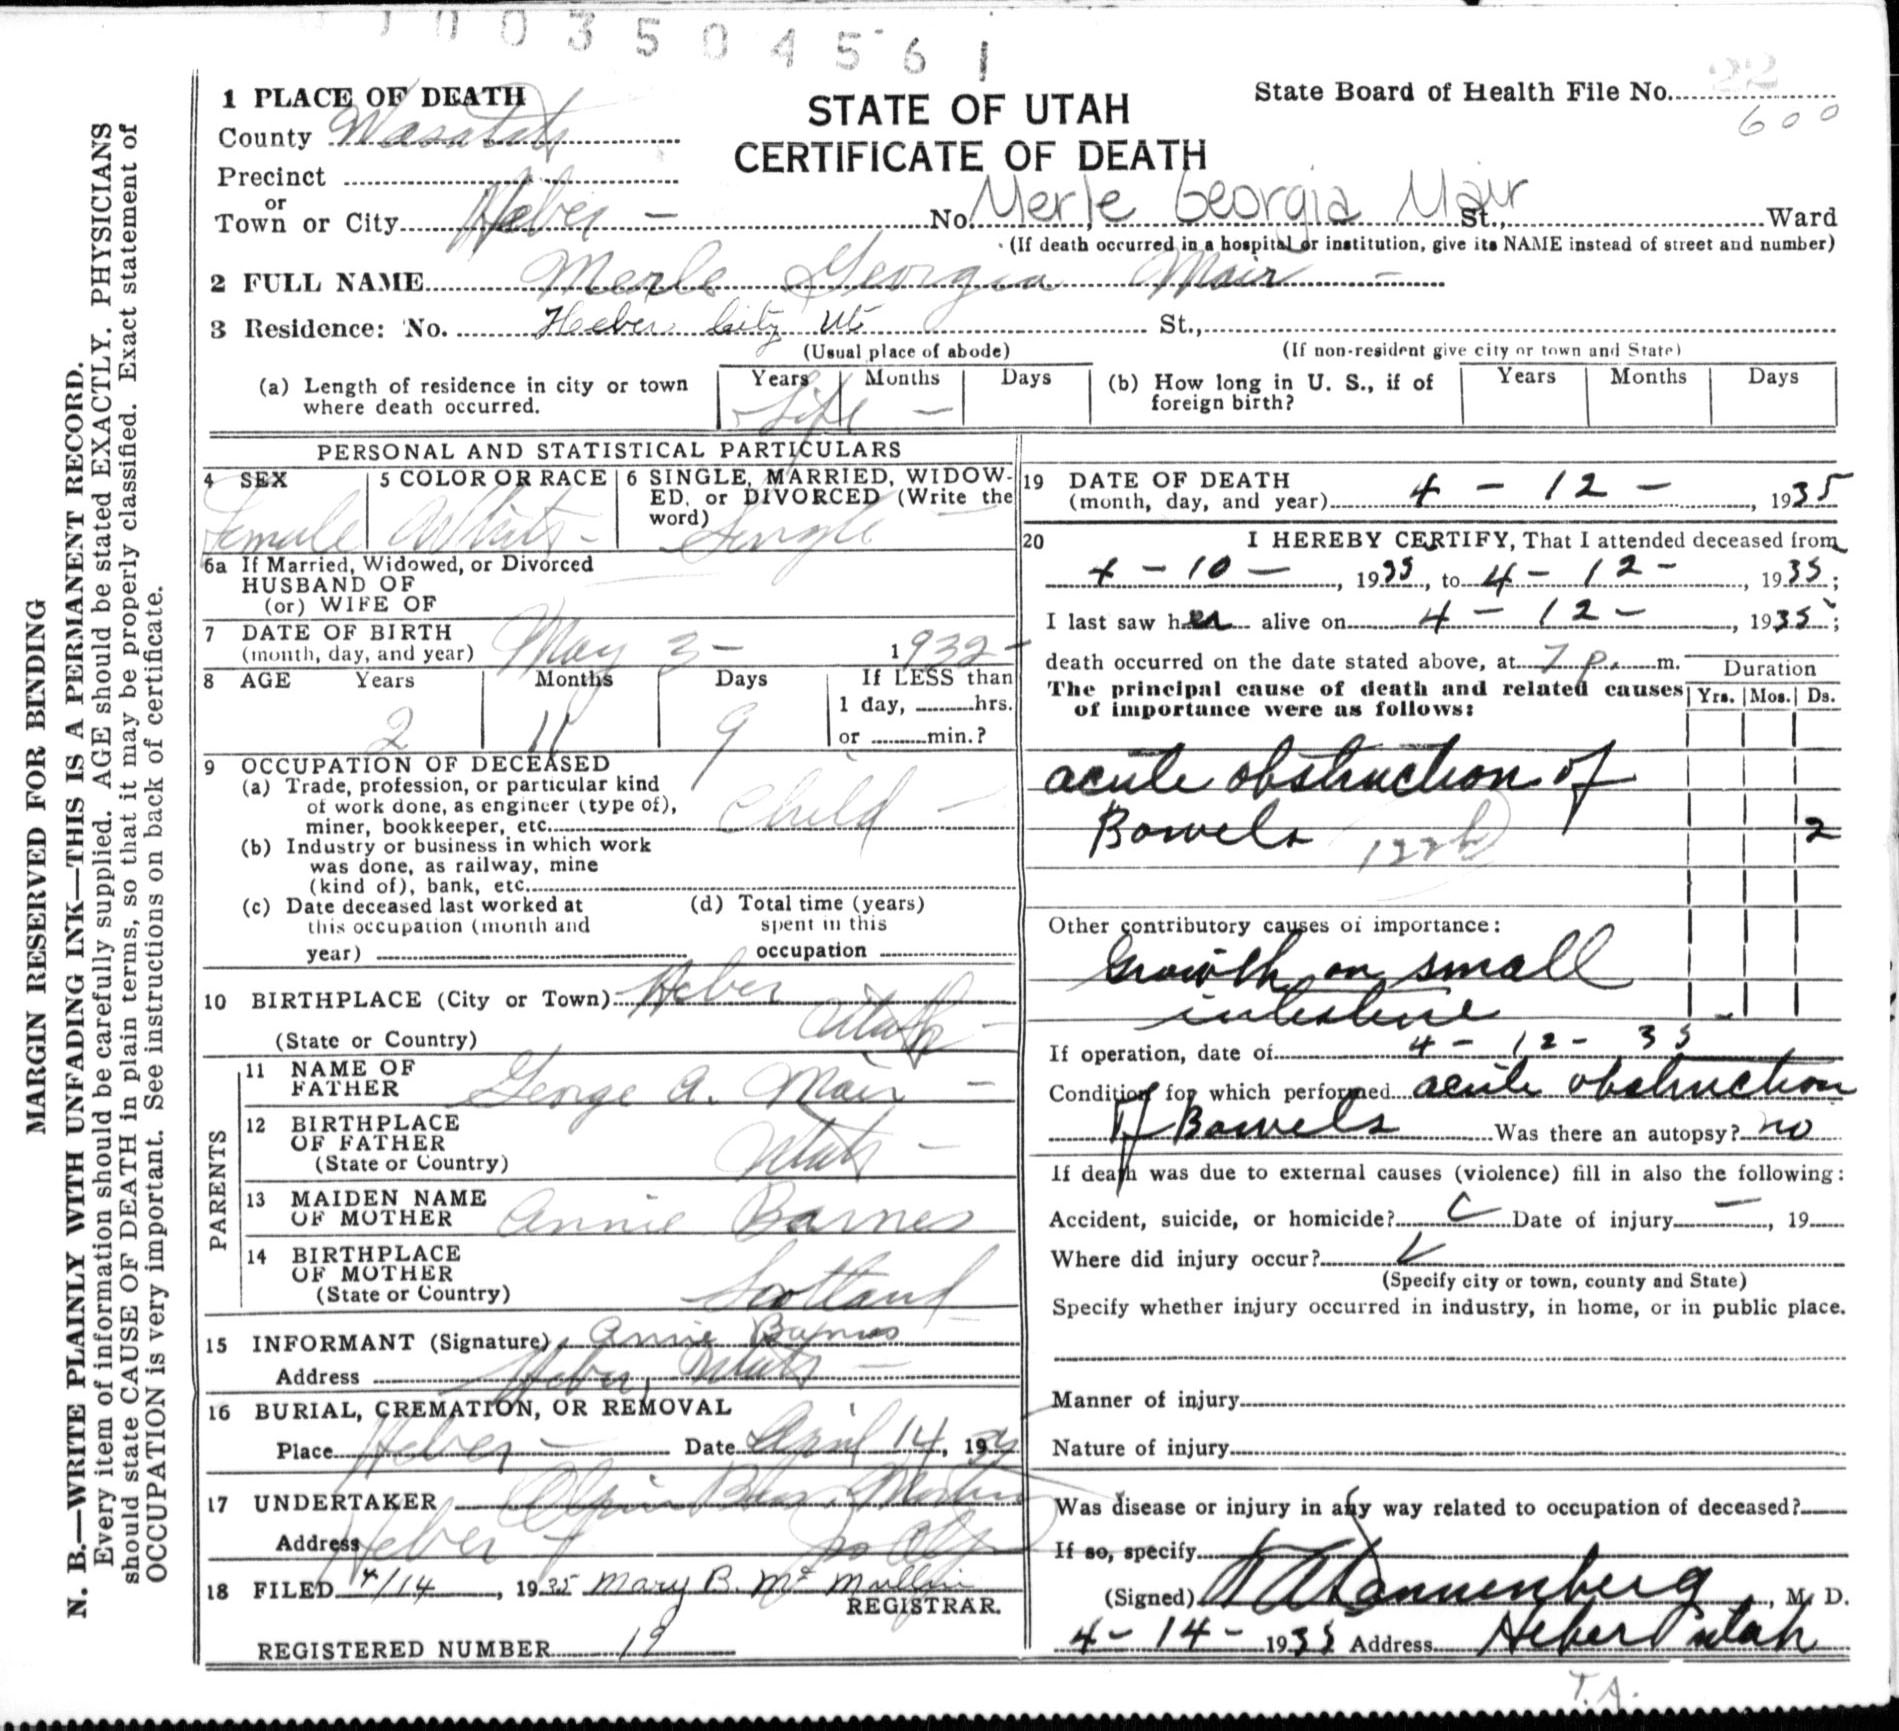 0 0 3 5 0 4 5 6 1
State Board of Health File No. 22
600
STATE OF UTAH
CERTIFICATE OF DEATH
1 PLACE OF DEATH
County Wasatch
Precinct
or
Town or City Heber - No. Merle Georgia Mair St., Ward
(If death occurred in a hospital or institution, give its NAME instead of street and number)
2 FULL NAME Merle Georgia Mair -
3 Residence: No. Heber City Ut St.,
(Usual place of abode) (If non-resident give city or town and State)
(a) Length of residence in city or town where death occurred. Years Life - Months Days (b) How long in U. S., if of foreign birth? Years Months Days
PERSONAL AND STATISTICAL PARTICULARS
4 SEX Female
5 COLOR OR RACE White -
6 SINGLE, MARRIED, WIDOW-
ED, or DIVORCED (Write the
word) Single -
6a If Married, Widowed, or Divorced
HUSBAND OF
(or) WIFE OF
7 DATE OF BIRTH
(month, day, and year) May 3 - 1932 -
8 AGE Years Months Days If LESS than
2 11 9 1 day, hrs.
or min.?
9 OCCUPATION OF DECEASED
(a) Trade, profession, or particular kind
of work done, as engineer (type of),
miner, bookkeeper, etc. Child -
(b) Industry or business in which work
was done, as railway, mine
(kind of), bank, etc.
(c) Date deceased last worked at
this occupation (month and
year)
(d) Total time (years)
spent in this
occupation
10 BIRTHPLACE (City or Town) Heber
(State or Country) Utah -
PARENTS
11 NAME OF
FATHER George A. Mair -
12 BIRTHPLACE
OF FATHER
(State or Country) Utah -
13 MAIDEN NAME
OF MOTHER Annie Barnes
14 BIRTHPLACE
OF MOTHER
(State or Country) Scotland
15 INFORMANT (Signature) Annie Barnes
Address Heber, Utah -
16 BURIAL, CREMATION, OR REMOVAL
Place Heber - Date April 14, 19
17 UNDERTAKER
Address Heber
18 FILED 4/14, 1935 Mary B. Mc Mullin
REGISTRAR.
REGISTERED NUMBER 19
19 DATE OF DEATH
(month, day, and year) 4 - 12 - , 1935
20 I HEREBY CERTIFY, That I attended deceased from
4 - 10 - , 1935, to 4 - 12 - , 1935;
I last saw her alive on 4 - 12 - , 1935;
death occurred on the date stated above, at 7 p. m.
Duration
The principal cause of death and related causes
of importance were as follows:
Yrs. Mos. Ds.
acute obstruction of
Bowels 122b 2
Other contributory causes of importance:
Growth on small
intestine
If operation, date of 4 - 12 - 35
Condition for which performed acute obstruction
of Bowels Was there an autopsy? no
If death was due to external causes (violence) fill in also the following:
Accident, suicide, or homicide? Date of injury - , 19
Where did injury occur?
(Specify city or town, county and State)
Specify whether injury occurred in industry, in home, or in public place.
Manner of injury
Nature of injury
Was disease or injury in any way related to occupation of deceased?
If so, specify
(Signed) Dannenberg, M. D.
4 - 14 - 1935 Address Heber Utah
T.A.
MARGIN RESERVED FOR BINDING
N. B.—WRITE PLAINLY WITH UNFADING INK—THIS IS A PERMANENT RECORD.
Every item of information should be carefully supplied. AGE should be stated EXACTLY. PHYSICIANS
should state CAUSE OF DEATH in plain terms, so that it may be properly classified. Exact statement of
OCCUPATION is very important. See instructions on back of certificate.